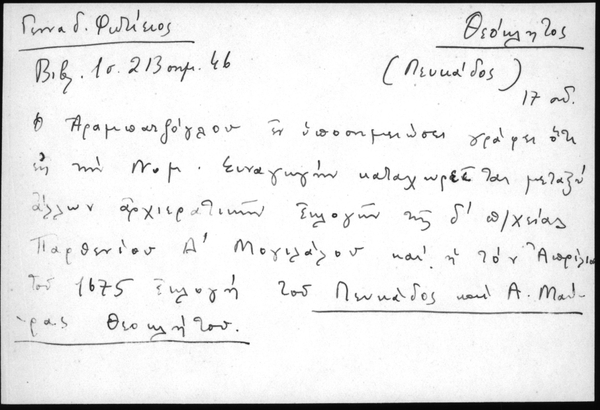 Γενναδ. Φωτίειος Θεόκλητος
Βιβλ. 1σ. 213 σημ. 46 (Λευκάδος)
17 αἰ.
Ὁ Ἀραμπατζόγλου ἐν ὑποσημειώσει γράφει ὅτι
εἰς τὴν Νομ. Συναγωγὴν καταχωρεῖται μεταξὺ
ἄλλων ἀρχιερατικῶν ἐκλογῶν τῆς δ' π/χείας
Παρθενίου Δ' Μογιλάλου καὶ ἡ τὸν Ἀπρίλιον
τοῦ 1675 ἐκλογὴ τοῦ Λευκάδος καὶ Ἁ. Μαύ-
ρας Θεοκλήτου.